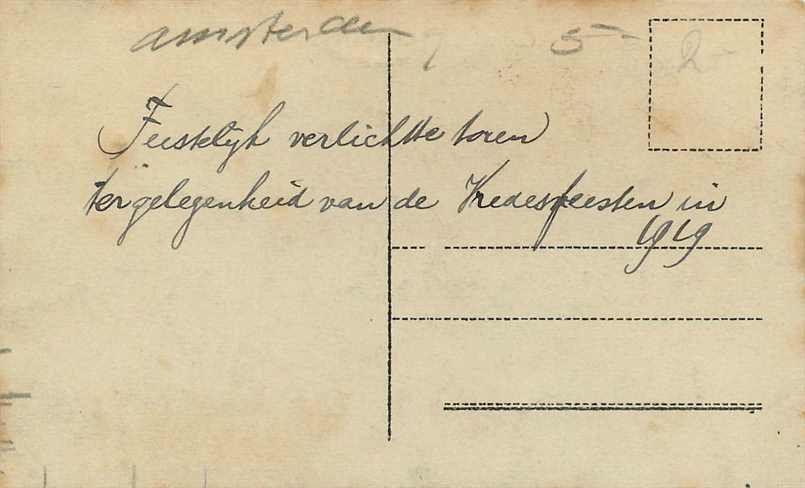 amsterdam 5-
2-
Feestelijk verlichtte toren
ter gelegenheid van de Vredesfeesten in
1919